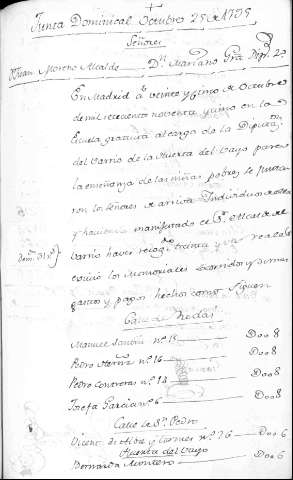 Junta Dominical Octubre 25 de 1795
Señores
Juan Moreno Alcalde Dn. Mariano Gra
En Madrid a veinte y cinco de Octubre
de mil setecientos noventa y cinco en la
Escuela gratuita al cargo de la Diputaon
del Varrio de la Huerta del Vayo para
la enseñanza de las niñas pobres se juntaron
los señores de arriva Individuos de ella
y haviendo manifestado el Sr. Alcalde de
Varrio haver recogido treinta y reales
los Memoriales socorridos y demas
gastos y pagos hechos como siguen
Calle de Rodas
Manuel nº 15 D008
Pedro nº 16 D008
Pedro Contreras nº 14 D008
Josefa Garcia nº 6 D008
Calle de Sn. Pedro
Vicente de Alba y nº 26 D006
Huerta del Vayo
Bernarda Montero D006